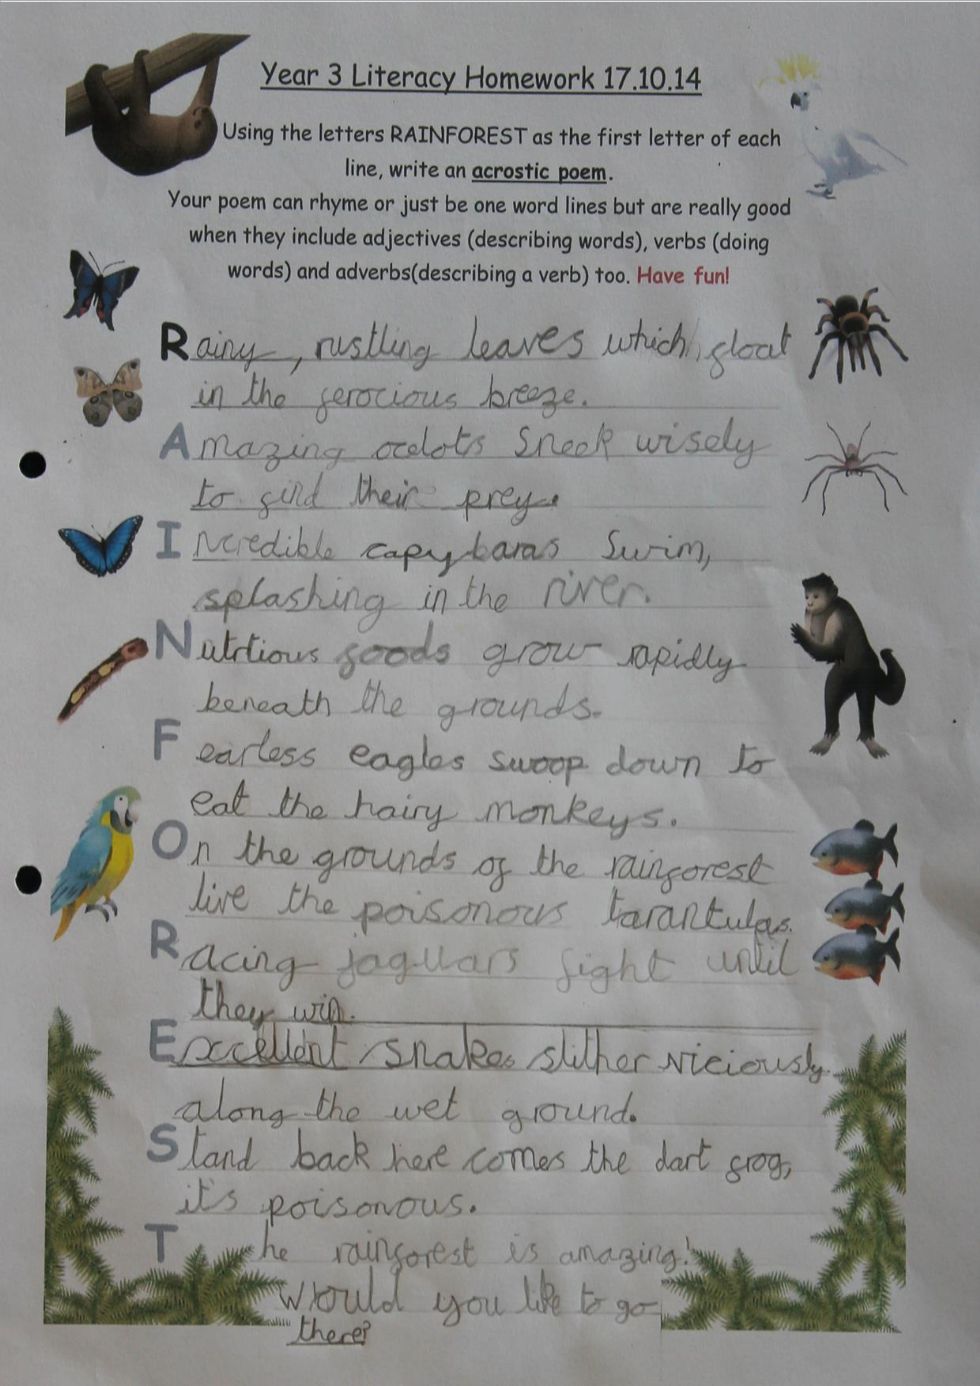 Year 3 Literacy Homework 17.10.14
Using the letters RAINFOREST as the first letter of each
line, write an acrostic poem.
Your poem can rhyme or just be one word lines but are really good
when they include adjectives (describing words), verbs (doing
words) and adverbs(describing a verb) too. Have fun!
Rainy, rustling leaves which float
in the ferocious breeze.
Amazing ocelots Sneek wisely
to find their prey.
Incredible capybaras Swim,
splashing in the river.
Nutrtious foods grow rapidly
beneath the grounds.
Fearless eagles swoop down to
eat the hairy monkeys.
On the grounds of the rainforest
live the poisonous tarantulas.
Racing jaguars fight until
they win.
Excellent snakes slither viciously
along the wet ground.
Stand back here comes the dart frog,
it's poisonous.
The rainforest is amazing!
Would you like to go
there?